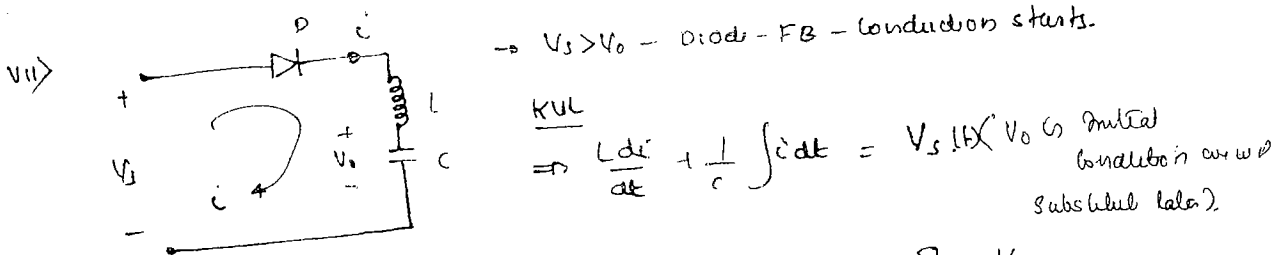 VII>
D i
+ Vs -
i
+ V₀ -
L
C
→ Vs>V₀ - Diode - FB - Conduction starts.
KVL
⇒ L di/dt + 1/C ∫i dt = Vs (t) V₀ is Initial
Condition
Substitut later).